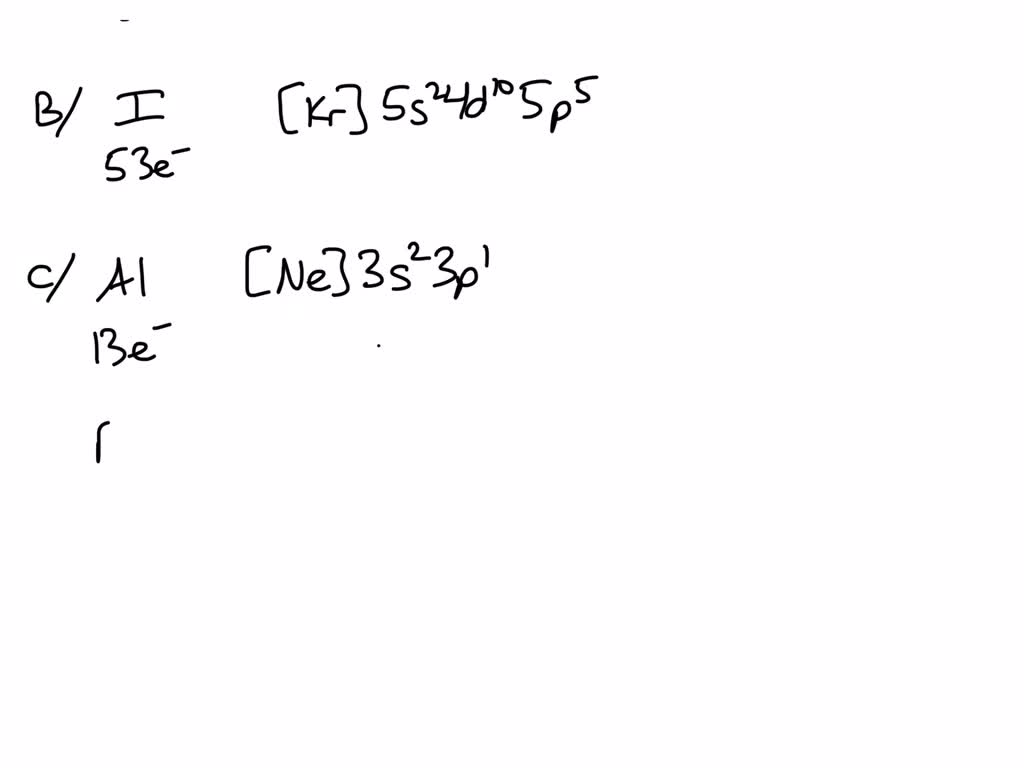 B/ I [Kr] 5s²4d¹⁰5p⁵
53e⁻
C/ Al [Ne] 3s²3p¹
13e⁻